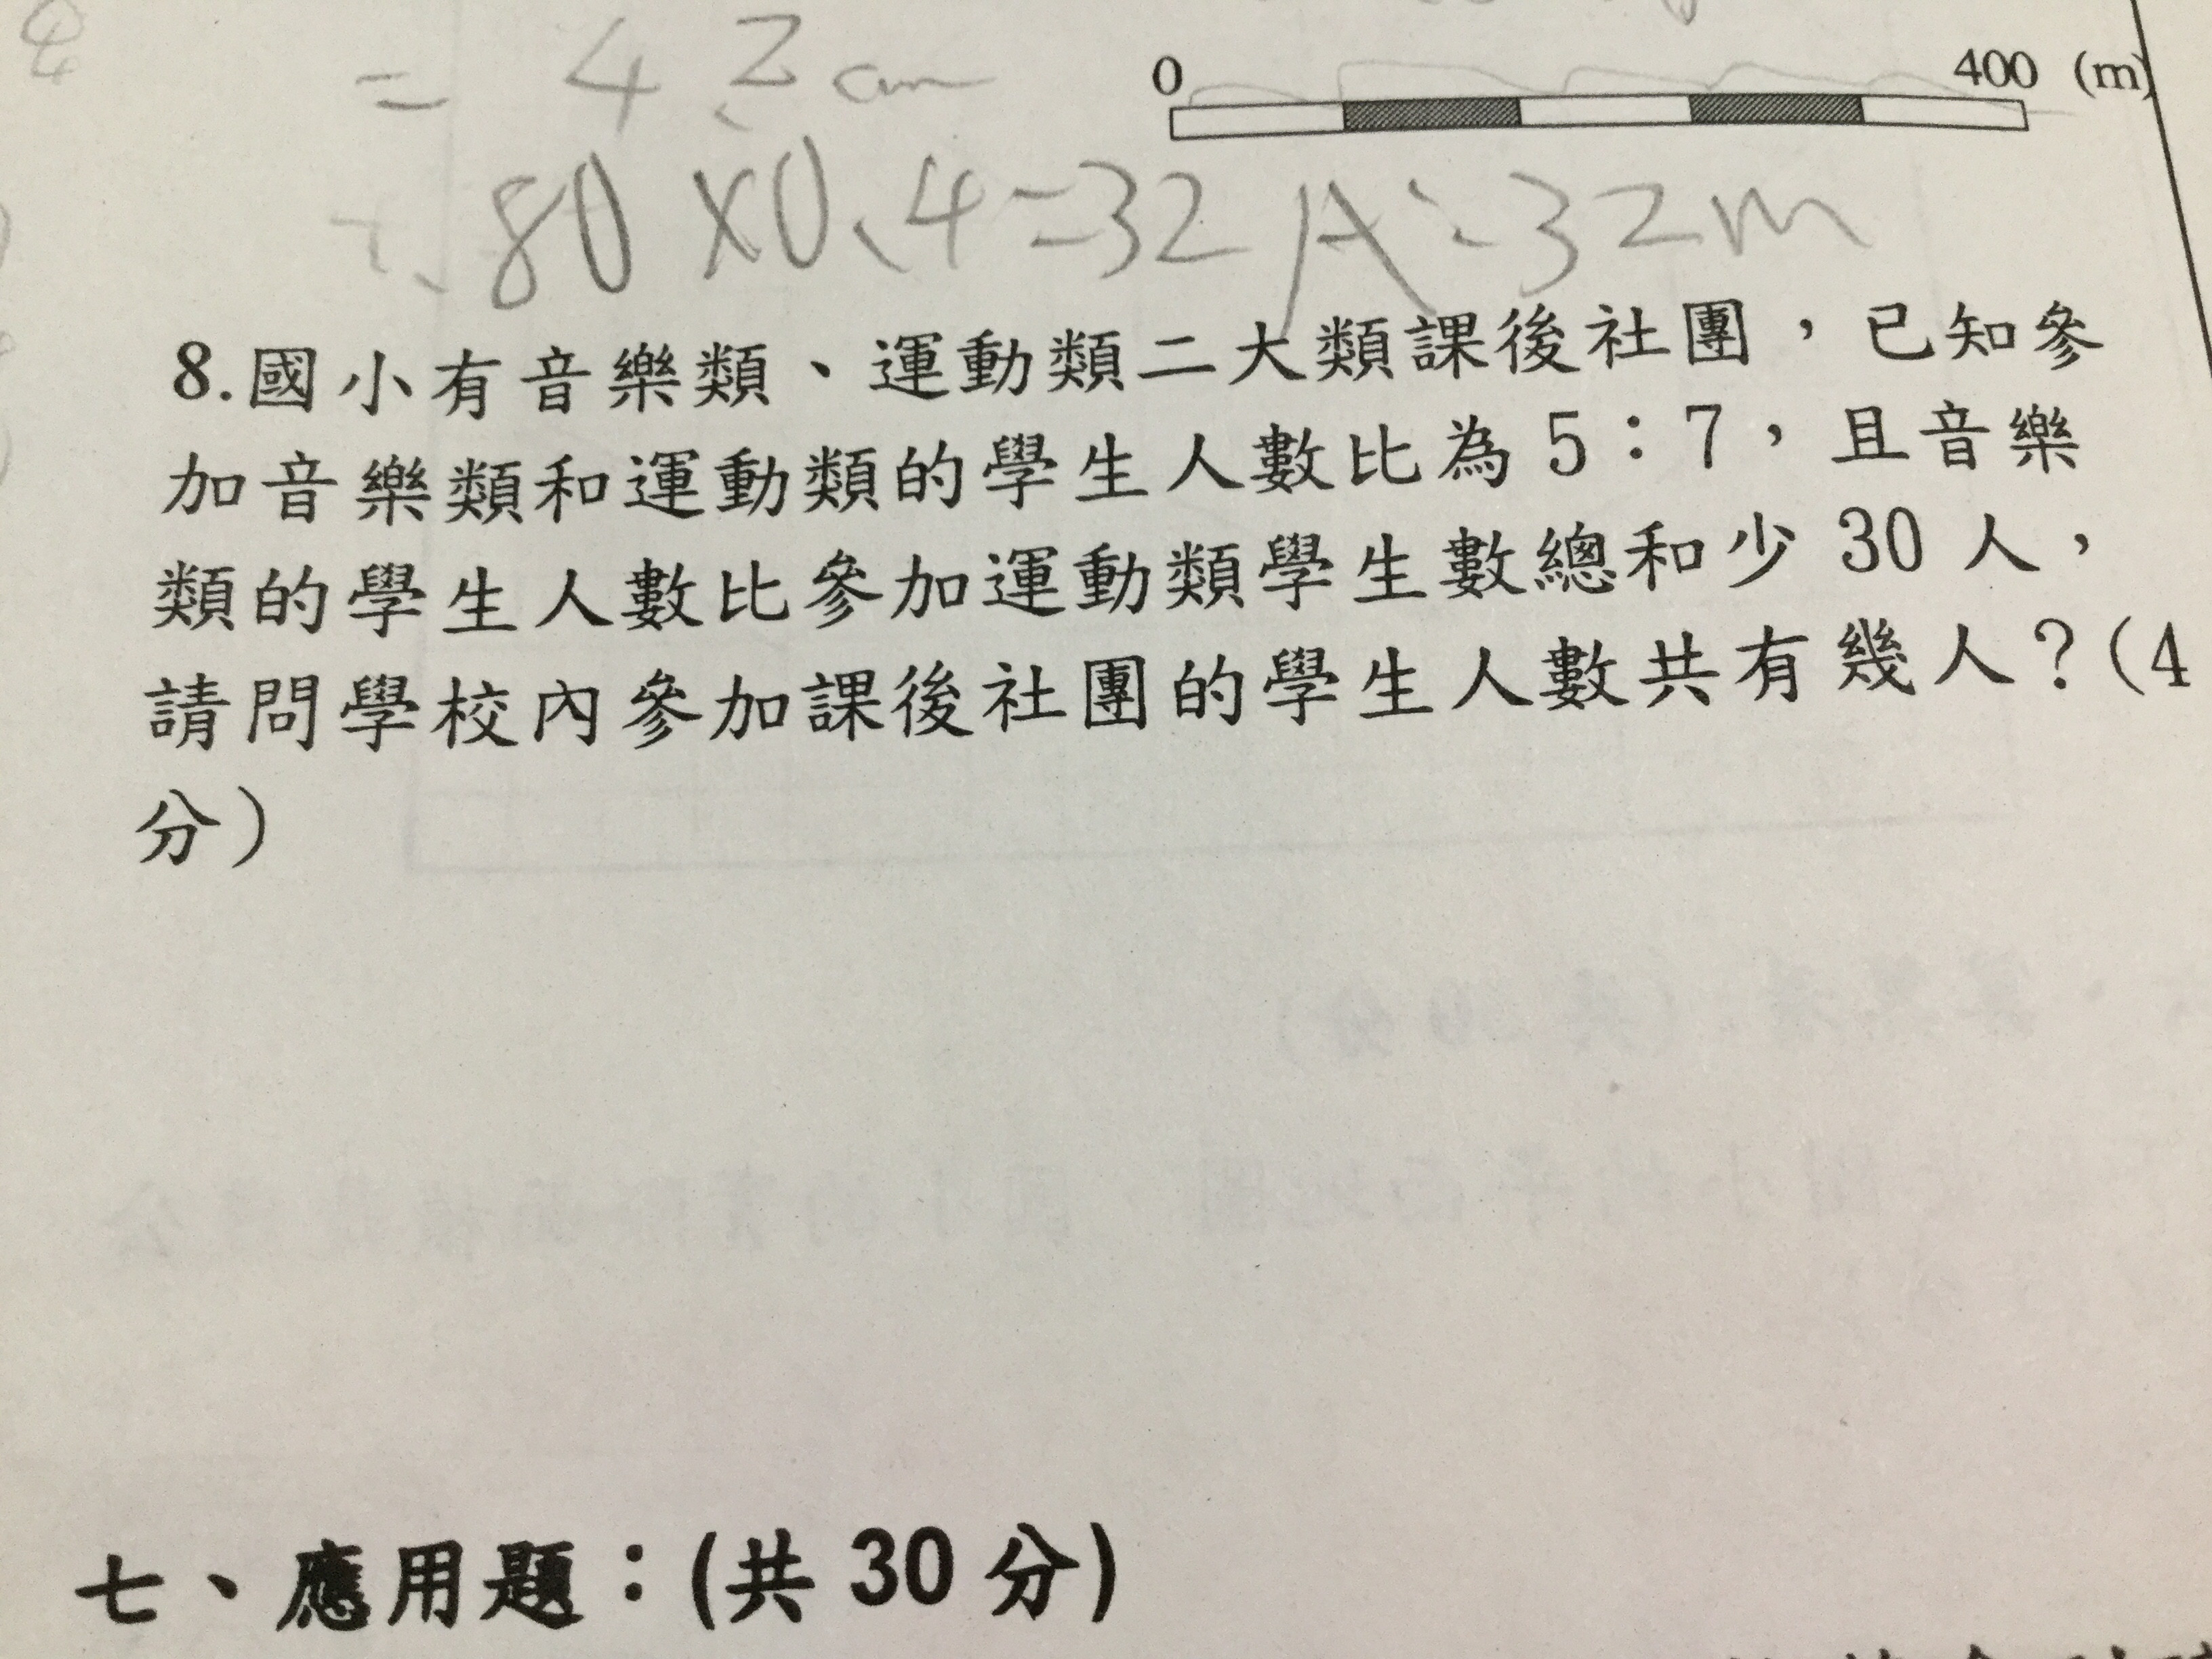 = 4.2cm
0 400 (m)
80×0.4=32 A:32m
8.國小有音樂類、運動類二大類課後社團，已知參
加音樂類和運動類的學生人數比為5：7，且音樂
類的學生人數比參加運動類學生數總和少30人，
請問學校內參加課後社團的學生人數共有幾人？(4
分)
七、應用題：(共30分)